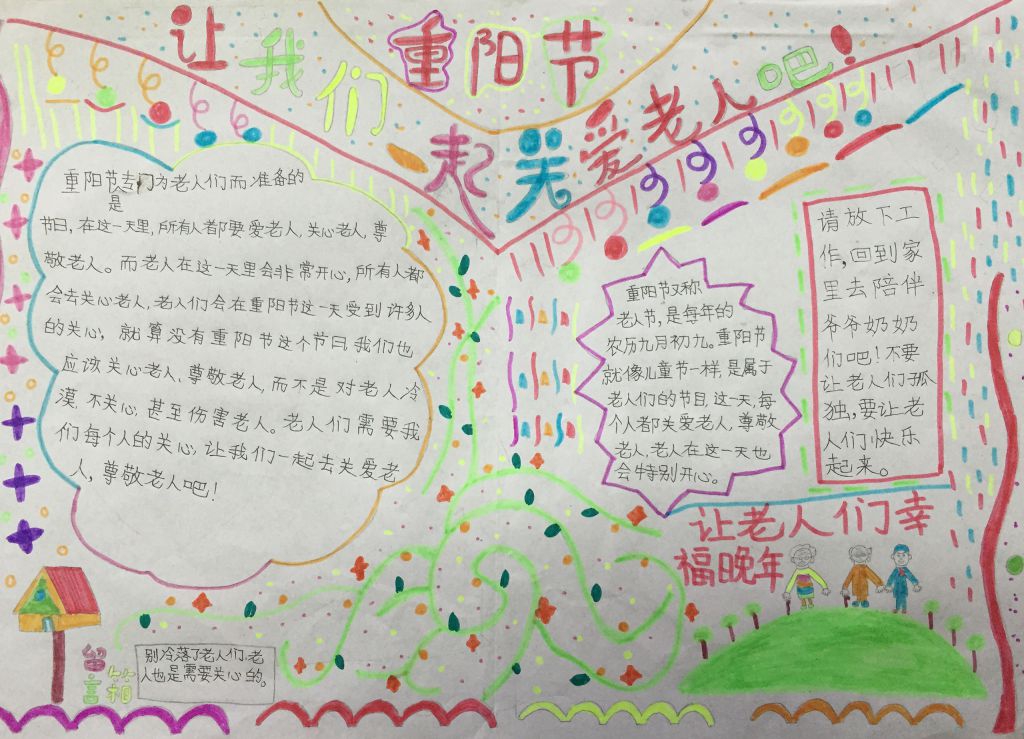 让我们重阳节
一起关爱老人吧!
重阳节专门为老人们而准备的
是
节日,在这一天里,所有人都要爱老人,关心老人,尊
敬老人。而老人在这一天里会非常开心,所有人都
会去关心老人,老人们会在重阳节这一天受到许多人
的关心,就算没有重阳节这个节日,我们也
应该关心老人、尊敬老人,而不是对老人冷
漠,不关心,甚至伤害老人。老人们需要我
们每个人的关心,让我们一起去关爱老
人,尊敬老人吧!
重阳节又称
老人节,是每年的
农历九月初九。重阳节
就像儿童节一样,是属于
老人们的节日,这一天,每
个人都关爱老人,尊敬
老人,老人在这一天也
会特别开心。
请放下工
作,回到家
里去陪伴
爷爷奶奶
们吧!不要
让老人们孤
独,要让老
人们快乐
起来。
让老人们幸
福晚年
留
言箱
别冷落了老人们,老
人也是需要关心的。